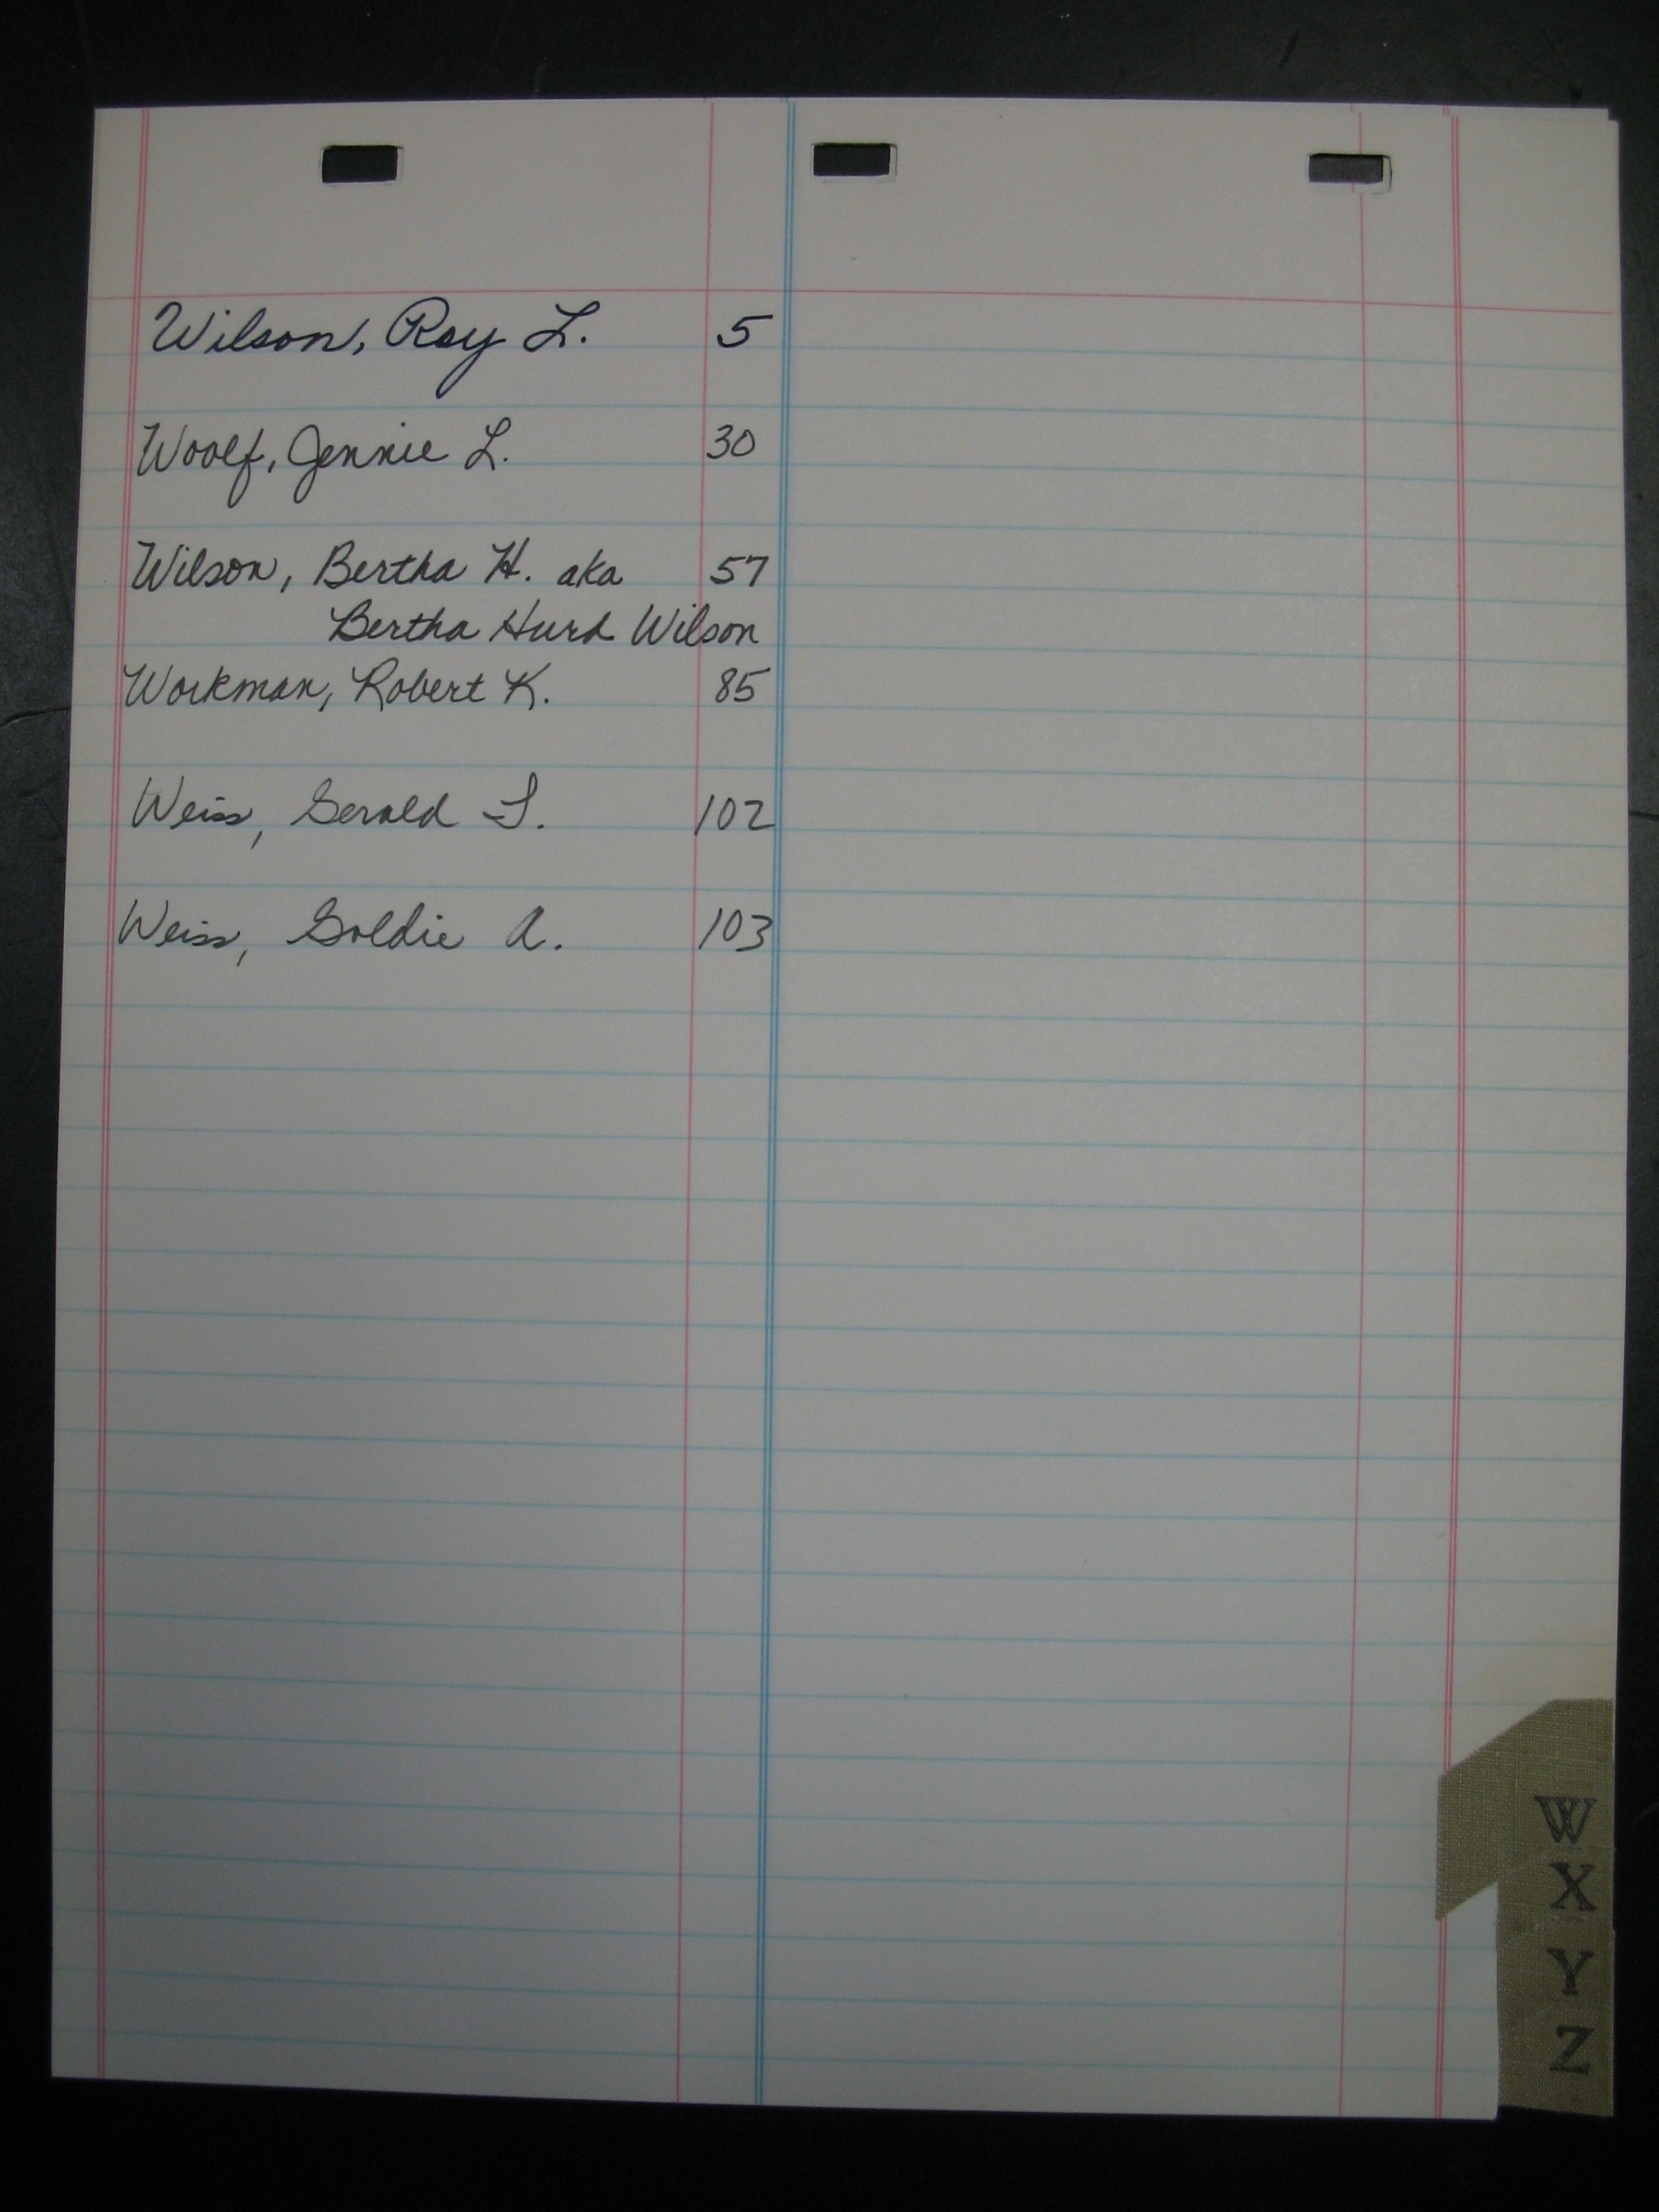 Wilson, Roy L. 5
Woolf, Jennie L. 30
Wilson, Bertha H. aka 57
Bertha Hurd Wilson
Workman, Robert K. 85
Weiss, Gerald S. 102
Weiss, Goldie A. 103
W
X
Y
Z